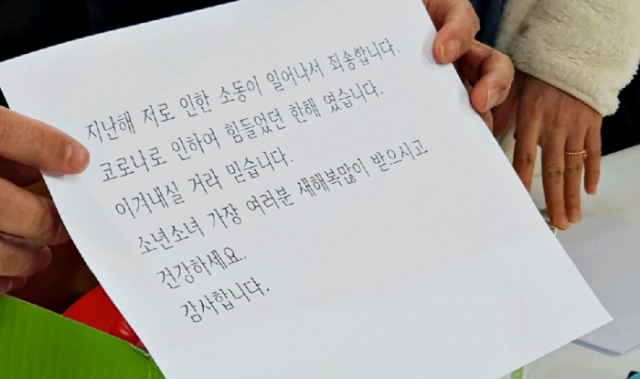 지난해 저로 인한 소동이 일어나서 죄송합니다.
코로나로 인하여 힘들었던 한해 였습니다.
이겨내실 거라 믿습니다.
소년소녀 가장 여러분 새해복많이 받으시고
건강하세요.
감사합니다.